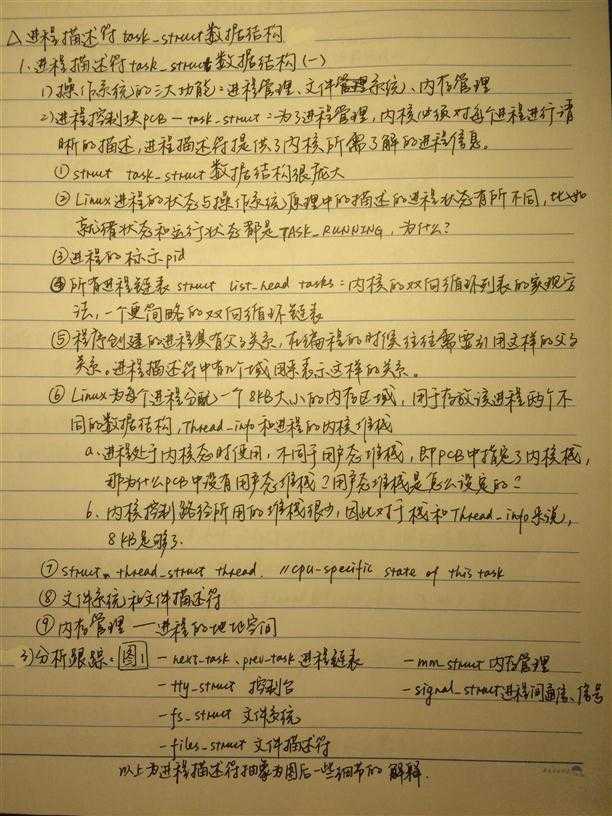 △进程描述符task_struct数据结构
1.进程描述符task_struct数据结构(一)
1)操作系统的三大功能:进程管理、文件管理系统、内存管理
2)进程控制块PCB—task_struct:为了进程管理,内核必须对每个进程进行清
晰的描述,进程描述符提供了内核所需了解的进程信息。
①struct task_struct数据结构很庞大
②Linux进程的状态与操作系统原理中的描述的进程状态有所不同,比如
就绪状态和运行状态都是TASK_RUNNING,为什么?
③进程的标示pid
④所有进程链表struct list_head tasks:内核的双向循环列表的实现方
法,一个更简略的双向循环链表
⑤程序创建的进程具有父子关系,在编程的时候往往需要引用这样的父子
关系。进程描述符中有几个域用来表示这样的关系。
⑥Linux为每个进程分配一个8KB大小的内存区域,用于存放该进程两个不
同的数据结构,Thread_info和进程的内核堆栈
a.进程处于内核态时使用,不同于用户态堆栈,即PCB中指定了内核栈,
那为什么PCB中没有用户态堆栈?用户态堆栈是怎么设定的?
b.内核控制路径所用的堆栈很少,因此对于栈和Thread_info来说,
8KB足够了.
⑦struct thread_struct thread. //cpu-specific state of this task
⑧文件系统和文件描述符
⑨内存管理—进程的地址空间
3)分析跟踪:图1 —next_task、prev_task进程链表 —mm_struct内存管理
—tty_struct 控制台 —signal_struct进程间通信、信号
—fs_struct 文件系统
—files_struct 文件描述符
以上为进程描述符抽象为图后一些细节的解释.